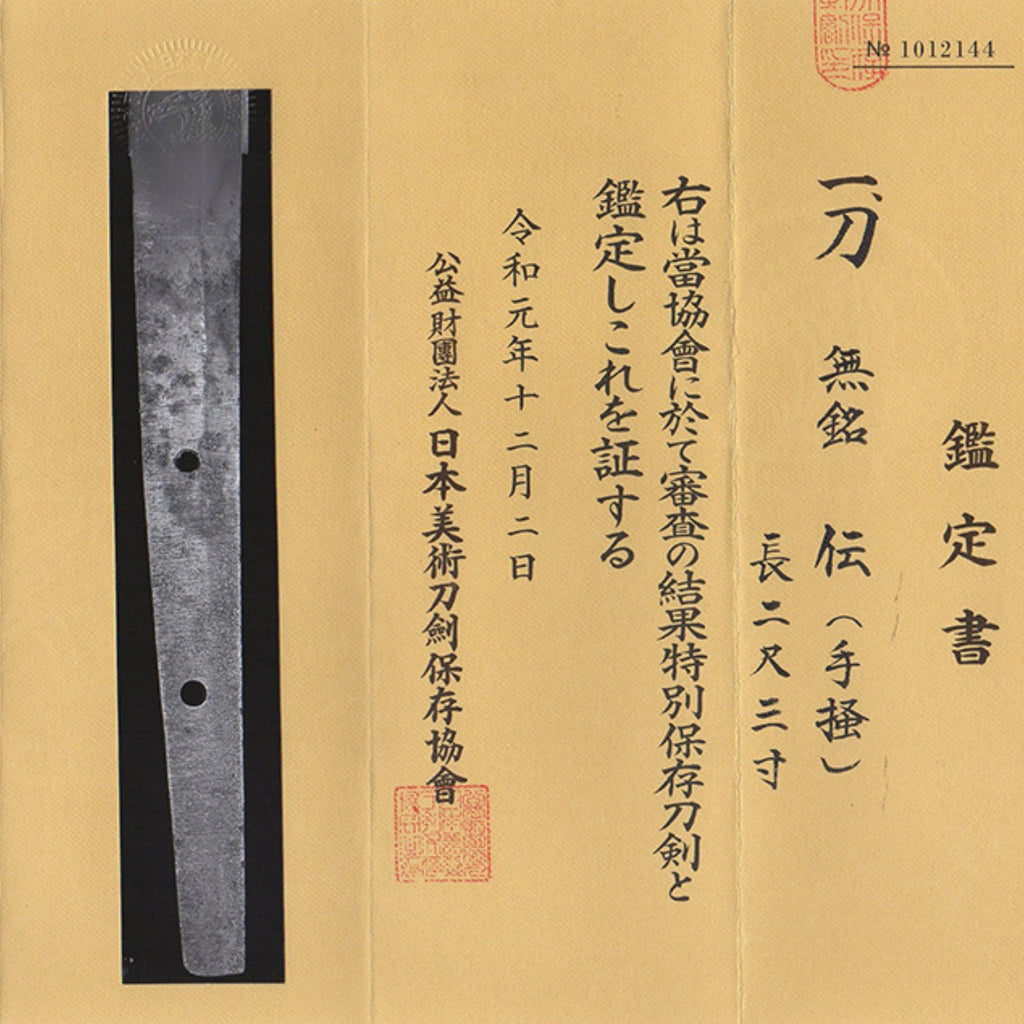 № 1012144
鑑定書
一、刀 無銘 伝(手掻)
長二尺三寸
右は當協會に於て審査の結果特別保存刀剣と
鑑定しこれを証する
令和元年十二月二日
公益財團法人日本美術刀劍保存協會